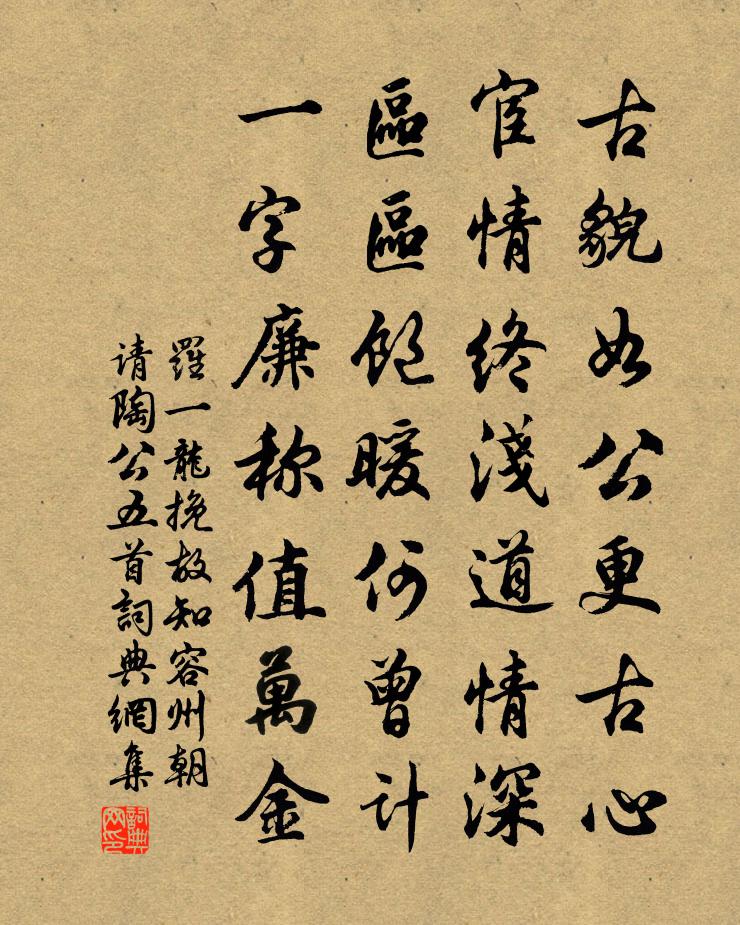 古貌如公更古心
宦情終淺道情深
區區飽暖何曾計
一字廉称值萬金
羅一龍挽故知容州朝
请陶公五首詞典網集
詞典网印